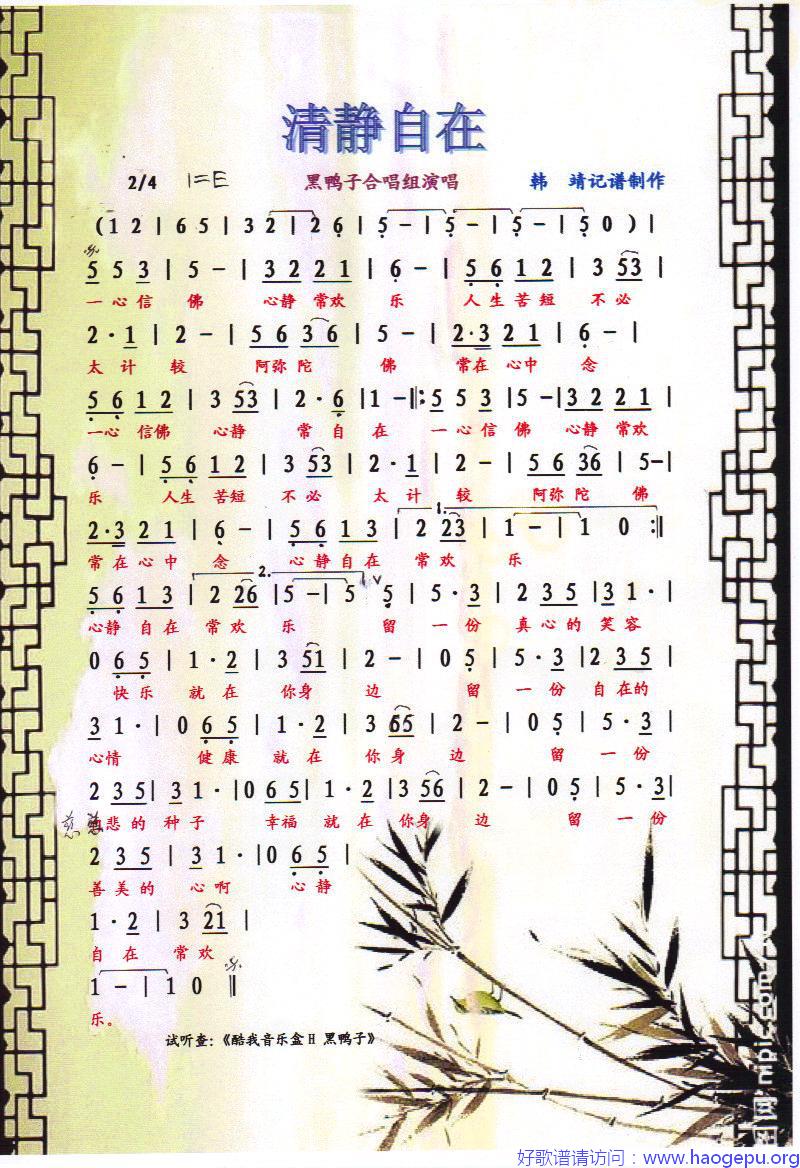 清静自在
2/4 1=E 黑鸭子合唱组演唱 韩 靖记谱制作
(1 2 | 6 5 | 3 2 | 2 6 | 5 - | 5 - | 5 - | 5 0 ) |
5 5 3 | 5 - | 3 2 2 1 | 6 - | 5 6 1 2 | 3 53 |
一 心 信 佛 心静 常欢 乐 人 生 苦 短 不 必
2 · 1 | 2 - | 5 6 3 6 | 5 - | 2 · 3 2 1 | 6 - |
太 计 较 阿弥 陀 佛 常在 心中 念
5 6 1 2 | 3 53 | 2 · 6 | 1 - ‖: 5 5 3 | 5 - | 3 2 2 1 |
一心 信佛 心静 常 自 在 一 心 信 佛 心静 常欢
6 - | 5 6 1 2 | 3 53 | 2 · 1 | 2 - | 5 6 36 | 5 - |
乐 人生 苦短 不 必 太 计 较 阿弥 陀 佛
1.
2 · 3 2 1 | 6 - | 5 6 1 3 | 2 23 | 1 - | 1 0 :‖
常 在 心 中 念 心 静 自 在 常 欢 乐
2.
5 6 1 3 | 2 26 | 5 - | 5 ∨ 5 | 5 · 3 | 2 3 5 | 3 1 · |
心静 自 在 常 欢 乐 留 一 份 真 心 的 笑 容
0 6 5 | 1 · 2 | 3 51 | 2 - | 0 5 | 5 · 3 | 2 3 5 |
快 乐 就 在 你 身 边 留 一 份 自 在 的
3 1 · | 0 6 5 | 1 · 2 | 3 65 | 2 - | 0 5 | 5 · 3 |
心情 健 康 就 在 你 身 边 留 一 份
2 3 5 | 3 1 · | 0 6 5 | 1 · 2 | 3 56 | 2 - | 0 5 | 5 · 3 |
慈悲 的 种 子 幸福 就 在 你身 边 留 一 份
2 3 5 | 3 1 · | 0 6 5 |
善 美 的 心 啊 心 静
1 · 2 | 3 21 |
自 在 常 欢
1 - | 1 0 ‖
乐。
试听查:《酷我音乐盒 H 黑鸭子》
图网 nipic.com
好歌谱请访问：www.haogepu.org